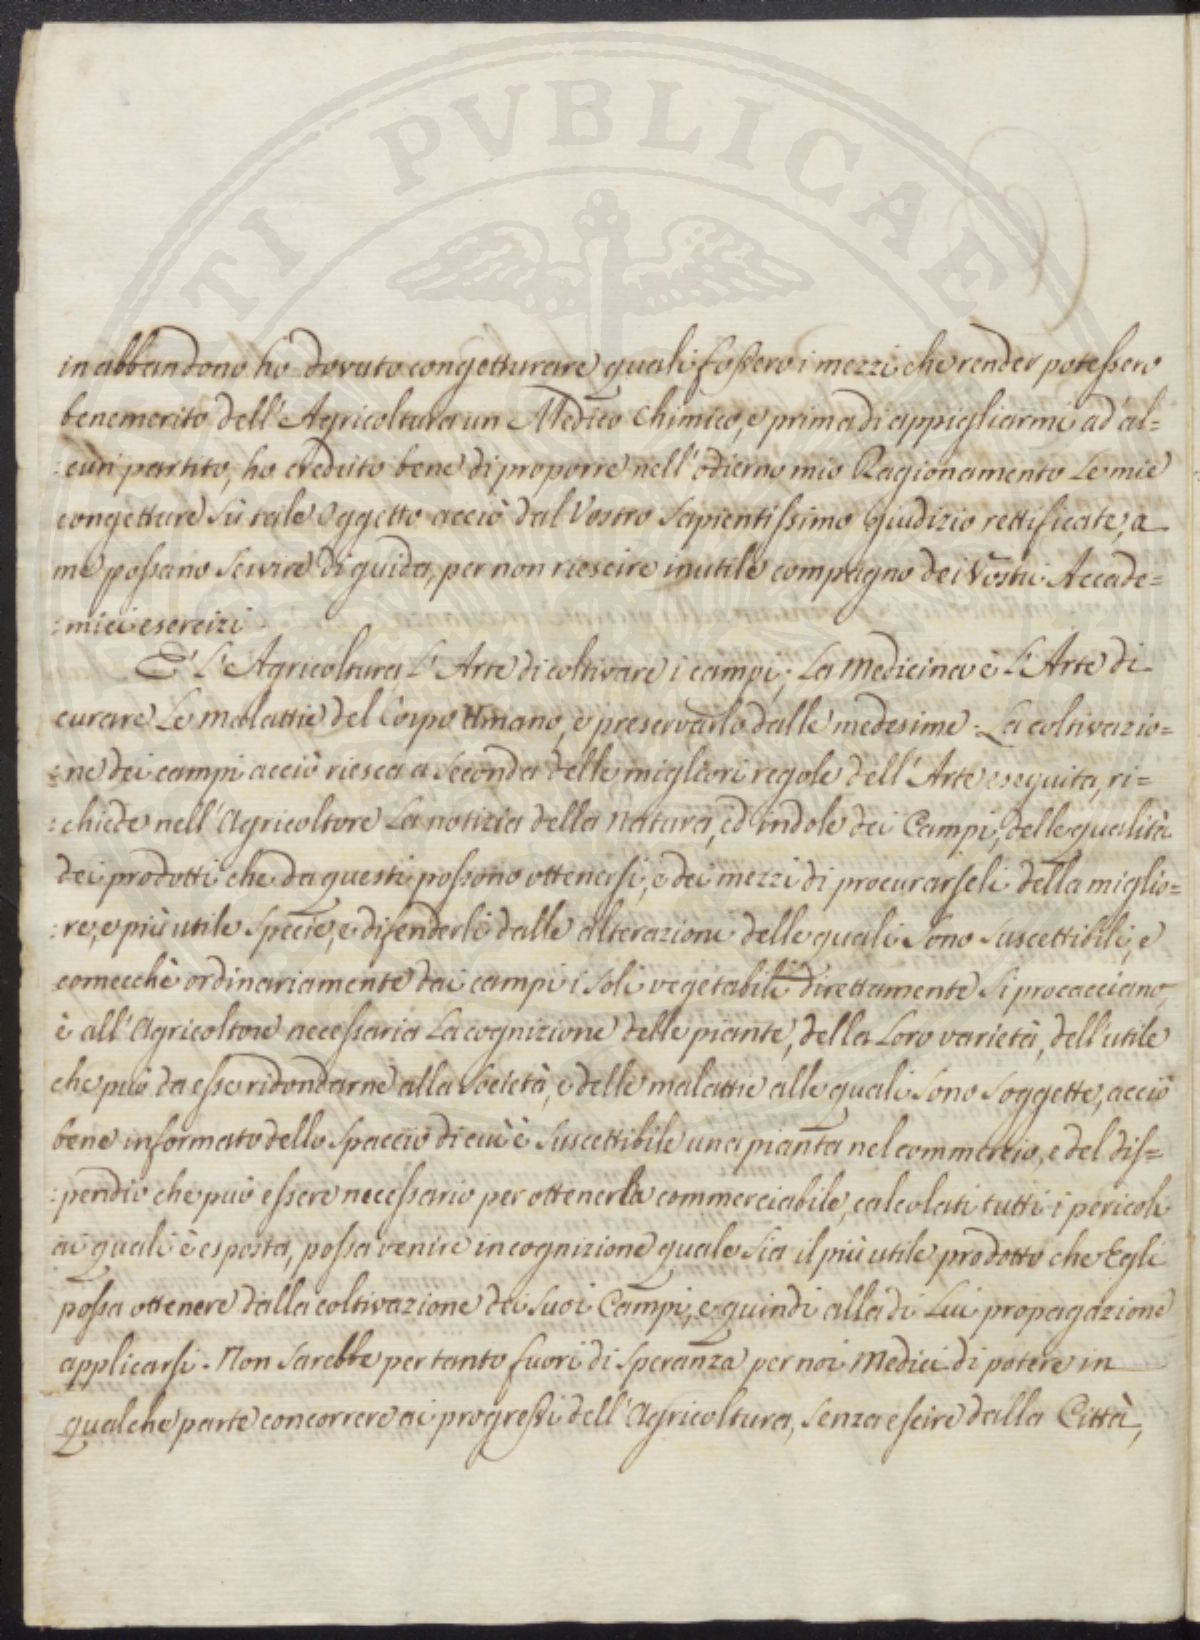 PVBLICAE
in abbandono ho dovuto congetturare quali fossero i mezzi che render potessero
benemerito dell' Agricoltura un Medico Chimico, e prima di appigliarmi ad al=
:cun partito, ho creduto bene di proporre nell' odierno mio Ragionamento Le mie
congetture sù tale oggetto acciò dal Vostro sapientissimo giudizio rettificate, a
me possano servire di guida, per non riescire inutile compagno dei Vostri Accade=
:mici esercizi.
E' L' Agricoltura L' Arte di coltivare i campi; La Medicina è L' Arte di
curare Le malattie del Corpo Umano, e preservarlo dalle medesime. La coltivazio=
:ne dei campi acciò riesca a seconda delle migliori regole dell' Arte eseguita, ri=
:chiede nell' Agricoltore La notizia della natura, ed indole dei Campi, delle qualità
dei prodotti che da questi possono ottenersi, e dei mezzi di procurarseli della miglio=
:re, e più utile specie, e difenderli dalle alterazioni delle quali sono suscettibili, e
comecchè ordinariamente dai campi i soli vegetabili direttamente si procacciano,
è all' Agricoltore necessaria La cognizione delle piante, della Loro varietà, dell' utile
che può da esse ridondarne alla società, e delle malattie alle quali sono soggette, acciò
bene informato dello spaccio di cui è suscettibile una pianta nel commercio, e del dis=
:pendio che può essere necessario per ottenerla commerciabile, calcolati tutti i pericoli
ai quali è esposta, possa venire in cognizione quale sia il più utile prodotto che Egli
possa ottenere dalla coltivazione dei suoi Campi, e quindi alla di Lui propagazione
applicarsi. Non sarebbe pertanto fuori di speranza per noi Medici di potere in
qualche parte concorrere ai progressi dell' Agricoltura, senza escire dalla Città,